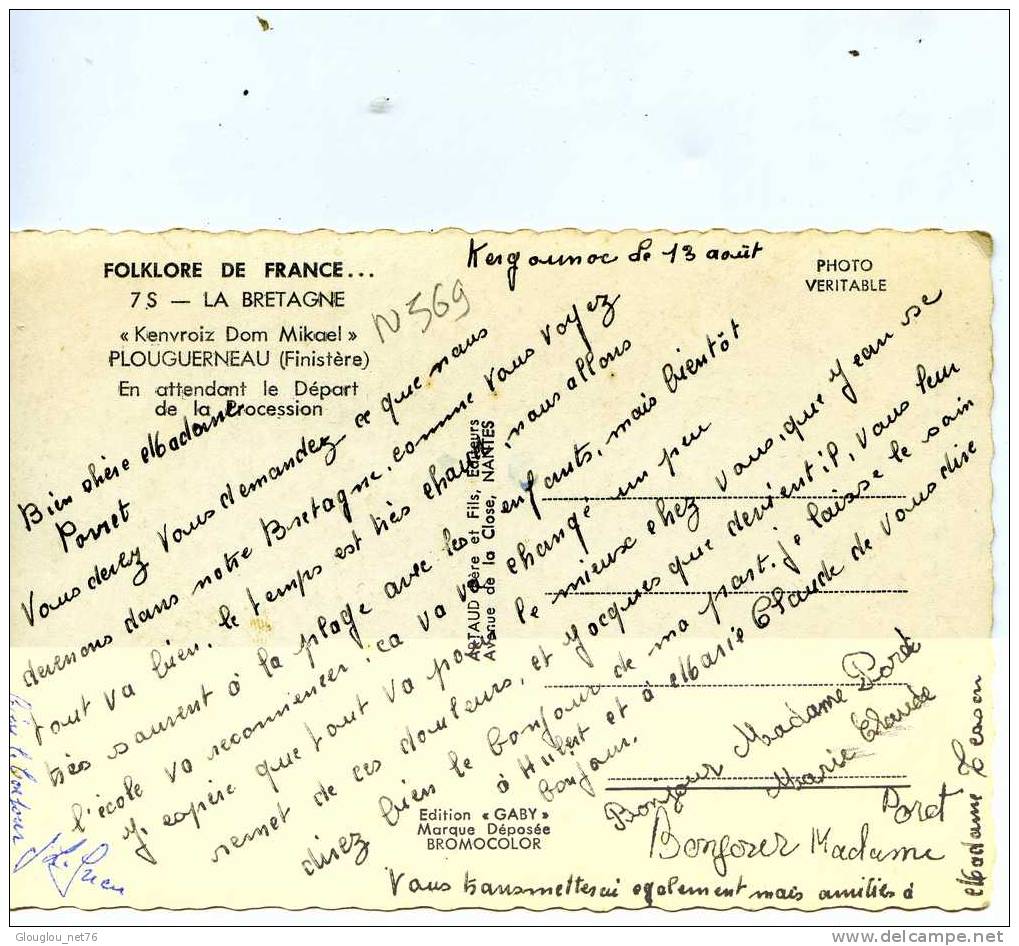 FOLKLORE DE FRANCE...
7 S — LA BRETAGNE
« Kenvroiz Dom Mikael »
PLOUGUERNEAU (Finistère)
En attendant le Départ
de la Procession
N 569
PHOTO
VERITABLE
Kergounoc le 13 août
Bien chère Madame
Porret
Vous devez vous demandez ce que nous
devenons dans notre Bretagne, comme vous voyez
tout va bien, le temps est très chaud, nous allons
très sauvent à la plage avec les enfants, mais bientôt
l'école va recommencer, ça va changé un peu
J'espère que tout va pour le mieux chez vous, que Jean se
remet de ces douleurs, et Jacques que devient il, vous leur
direz bien le bonjour de ma part. Je laisse le soin
à Hubert et à Marie Claude de vous dire
bonjour.
ARTAUD Père et Fils, Editeurs
Avenue de la Close, NANTES
Bonjour Madame Poret
Marie Claude
Bonjour Madame
Poret
Vous transmetterai egalement mais amitiés à
Madame
Edition « GABY »
Marque Déposée
BROMOCOLOR
Glouglou_net76
delcampe.net